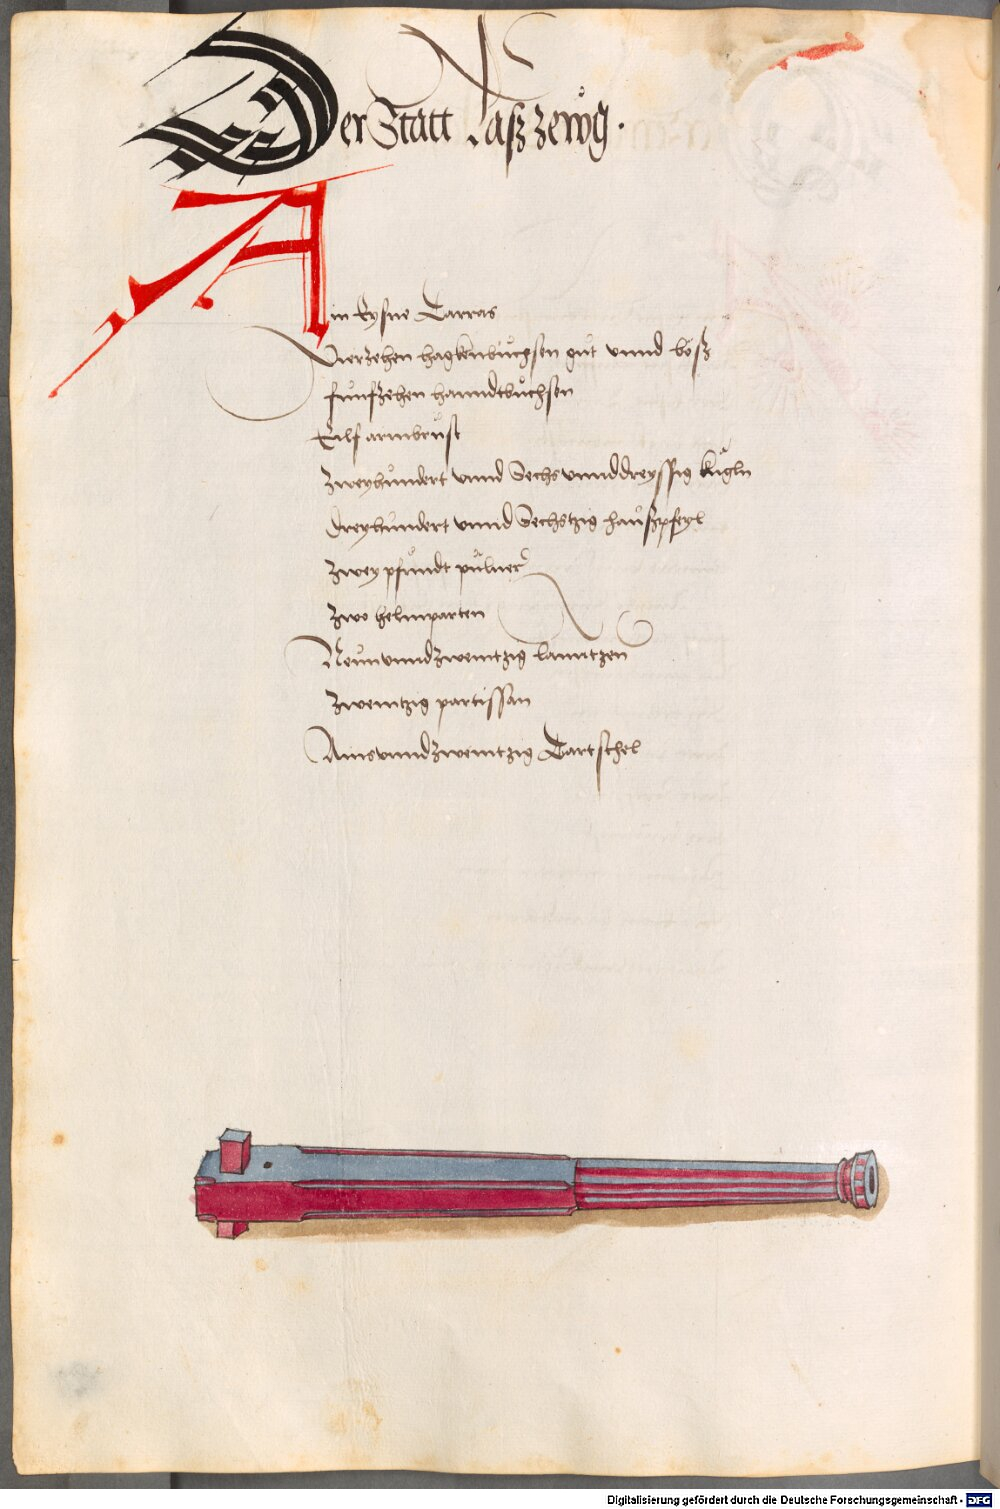 Der Statt Laß zewg.
Ain Eysne Tarras
Vierzehen hagkenbuchsen gut vnnd böß
funfzehen hanndtbuchsen
Ailf armbrust
zweyhundert vnnd Sechs vnnddreyssig kugln
dreyhundert vnnd Sechstzig haußpfeyl
zwey pfundt puluer
zwo helmparten
Neunvnndzweintzig lanntzen
zweintzig partissan
Ainsvnndzweintzig Tartschel
Digitalisierung gefördert durch die Deutsche Forschungsgemeinschaft - DFG